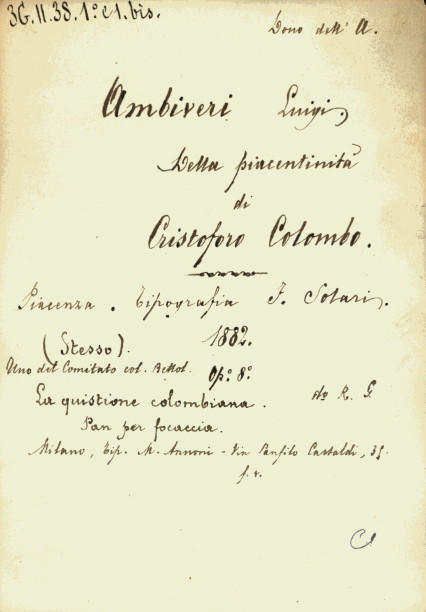 3G.II.38.1º e 1.bis.
Dono dell'A.
Ambiveri Luigi,
Della piacentinità
di
Cristoforo Colombo.
Piacenza. Tipografia F. Solari.
1882.
(Stesso).
Uno del Comitato col. Bettol.
Op.º 8.º
La quistione colombiana.
Pan per focaccia.
Milano, Tip. M. Annoni - Via Panfilo Castaldi, 35.